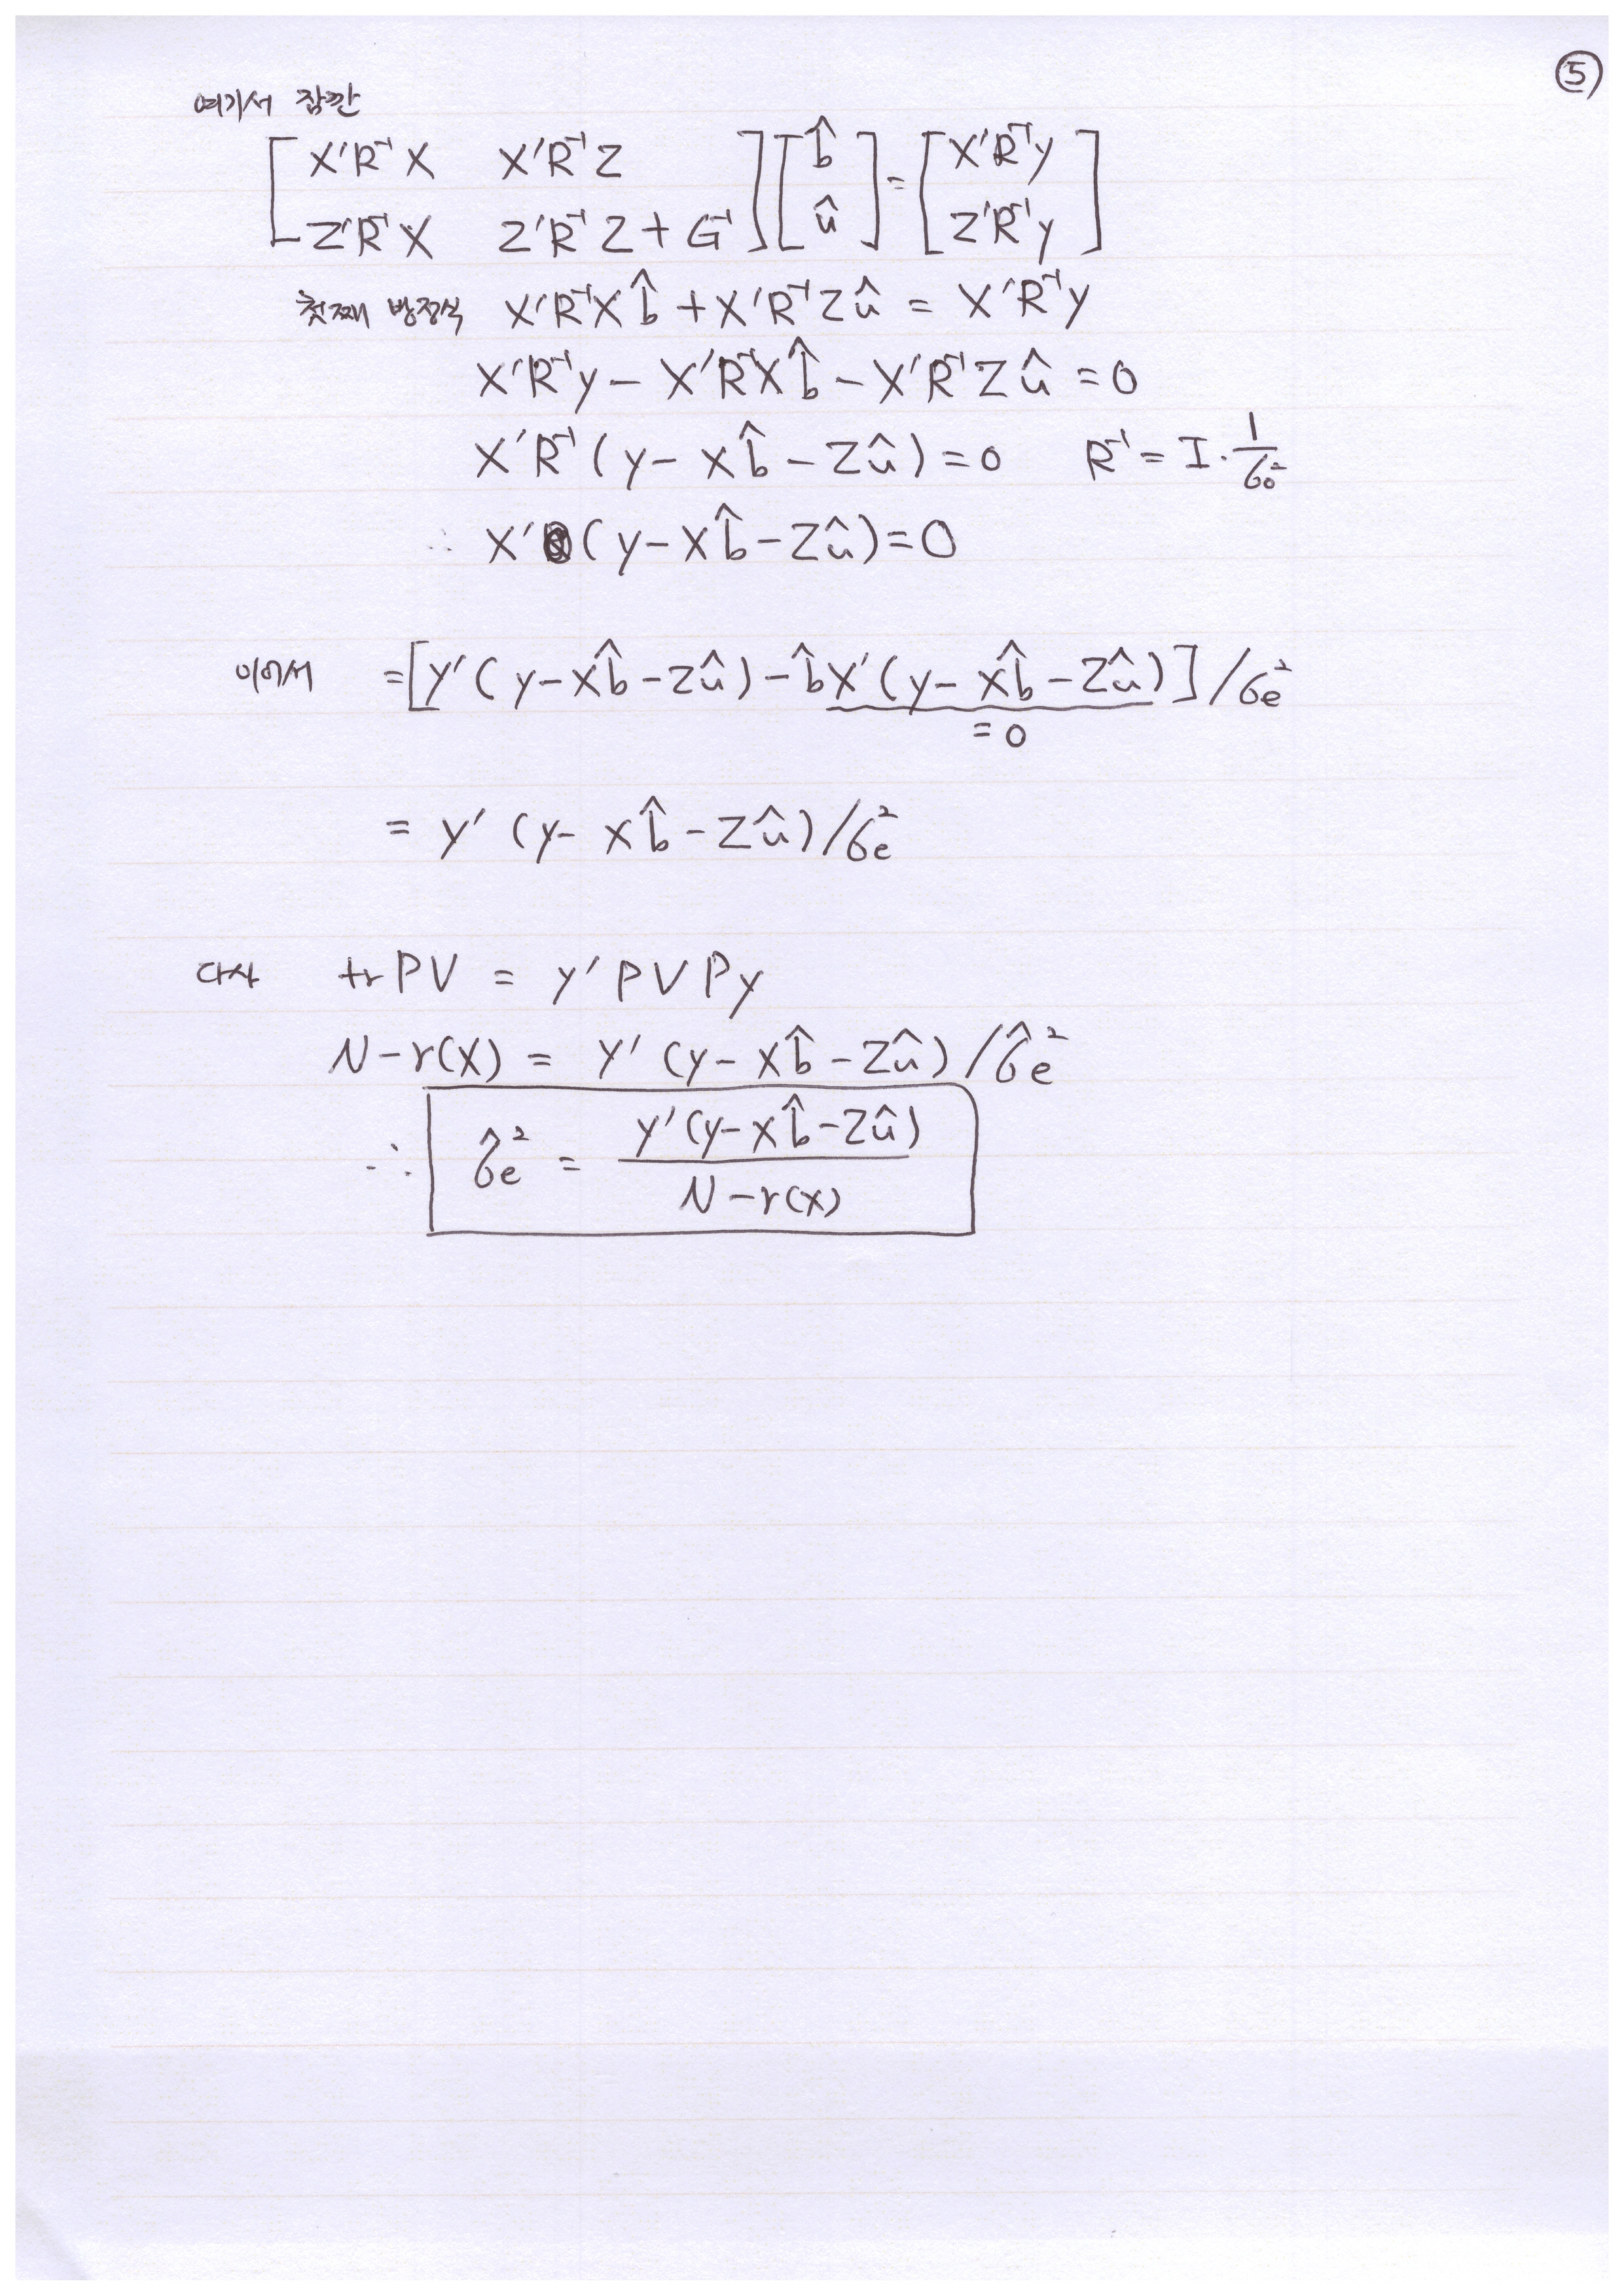 ⑤
여기서 잠깐
[ X'R⁻¹X X'R⁻¹Z ] [ b̂ ] = [ X'R⁻¹y ]
[ Z'R⁻¹X Z'R⁻¹Z + G⁻¹ ] [ û ] [ Z'R⁻¹y ]
첫째 방정식 X'R⁻¹Xb̂ + X'R⁻¹Zû = X'R⁻¹y
X'R⁻¹y − X'R⁻¹Xb̂ − X'R⁻¹Zû = 0
X'R⁻¹(y − Xb̂ − Zû) = 0 R⁻¹ = I · 1/σ
∴ X'(y − Xb̂ − Zû) = 0
이어서 = [y'(y − Xb̂ − Zû) − b̂X'(y − Xb̂ − Zû)] / σe²
= 0
= y'(y − Xb̂ − Zû) / σe²
다시 tr PV = y'PVPy
N − r(X) = y'(y − Xb̂ − Zû) / σ̂e²
∴ σ̂e² = y'(y − Xb̂ − Zû) / N − r(X)